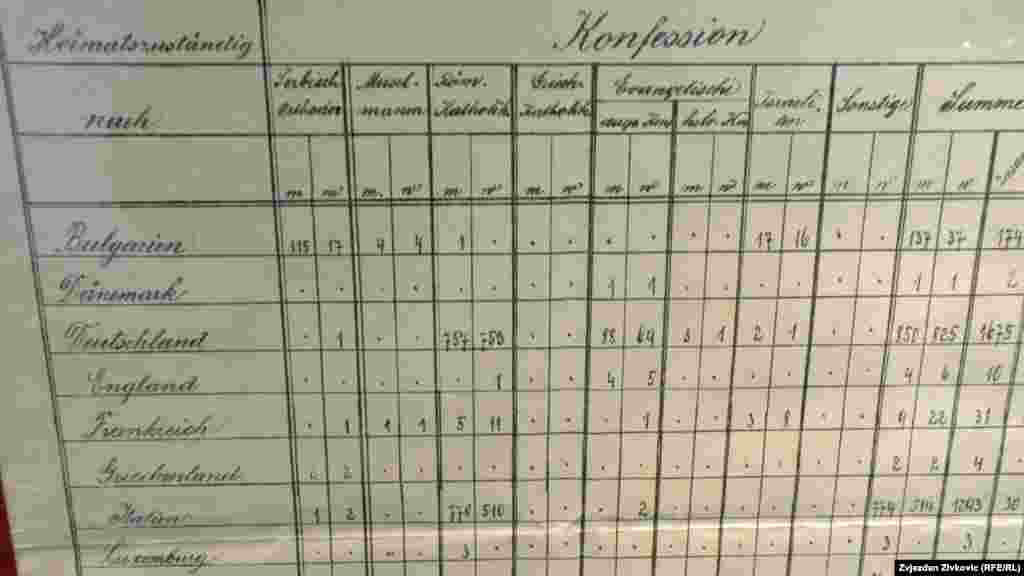 Heimatszuständig Konfession
nach Serbisch- Musel- Röm. Griech. Evangelische Israeli- Sonstige Summe
orthodox manen Katholik. Katholik. augs. Konf. helv. Kon. ten
m w m. w m w m w m w m w m w m w m w
Bulgarien 115 17 4 4 1 . . . . . . . 17 16 . . 137 37 174
Dänemark . . . . . . . . 1 1 . . . . . . 1 1 2
Deutschland . 1 . . 757 759 . . 88 64 3 1 2 1 . . 850 825 1675
England . . . . . 1 . . 4 5 . . . . . . 4 6 10
Frankreich . 1 1 1 5 11 . . . 1 . . 3 8 . . 9 22 31
Griechenland 2 2 . . . . . . . . . . . . . . 2 2 4
Italien 1 2 . . 510 . . . 2 . . . . . . 774 514
Luxemburg . . . . 3 . . . . . . . . . . . 3 . 3
Zvjezdan Zivkovic (RFE/RL)